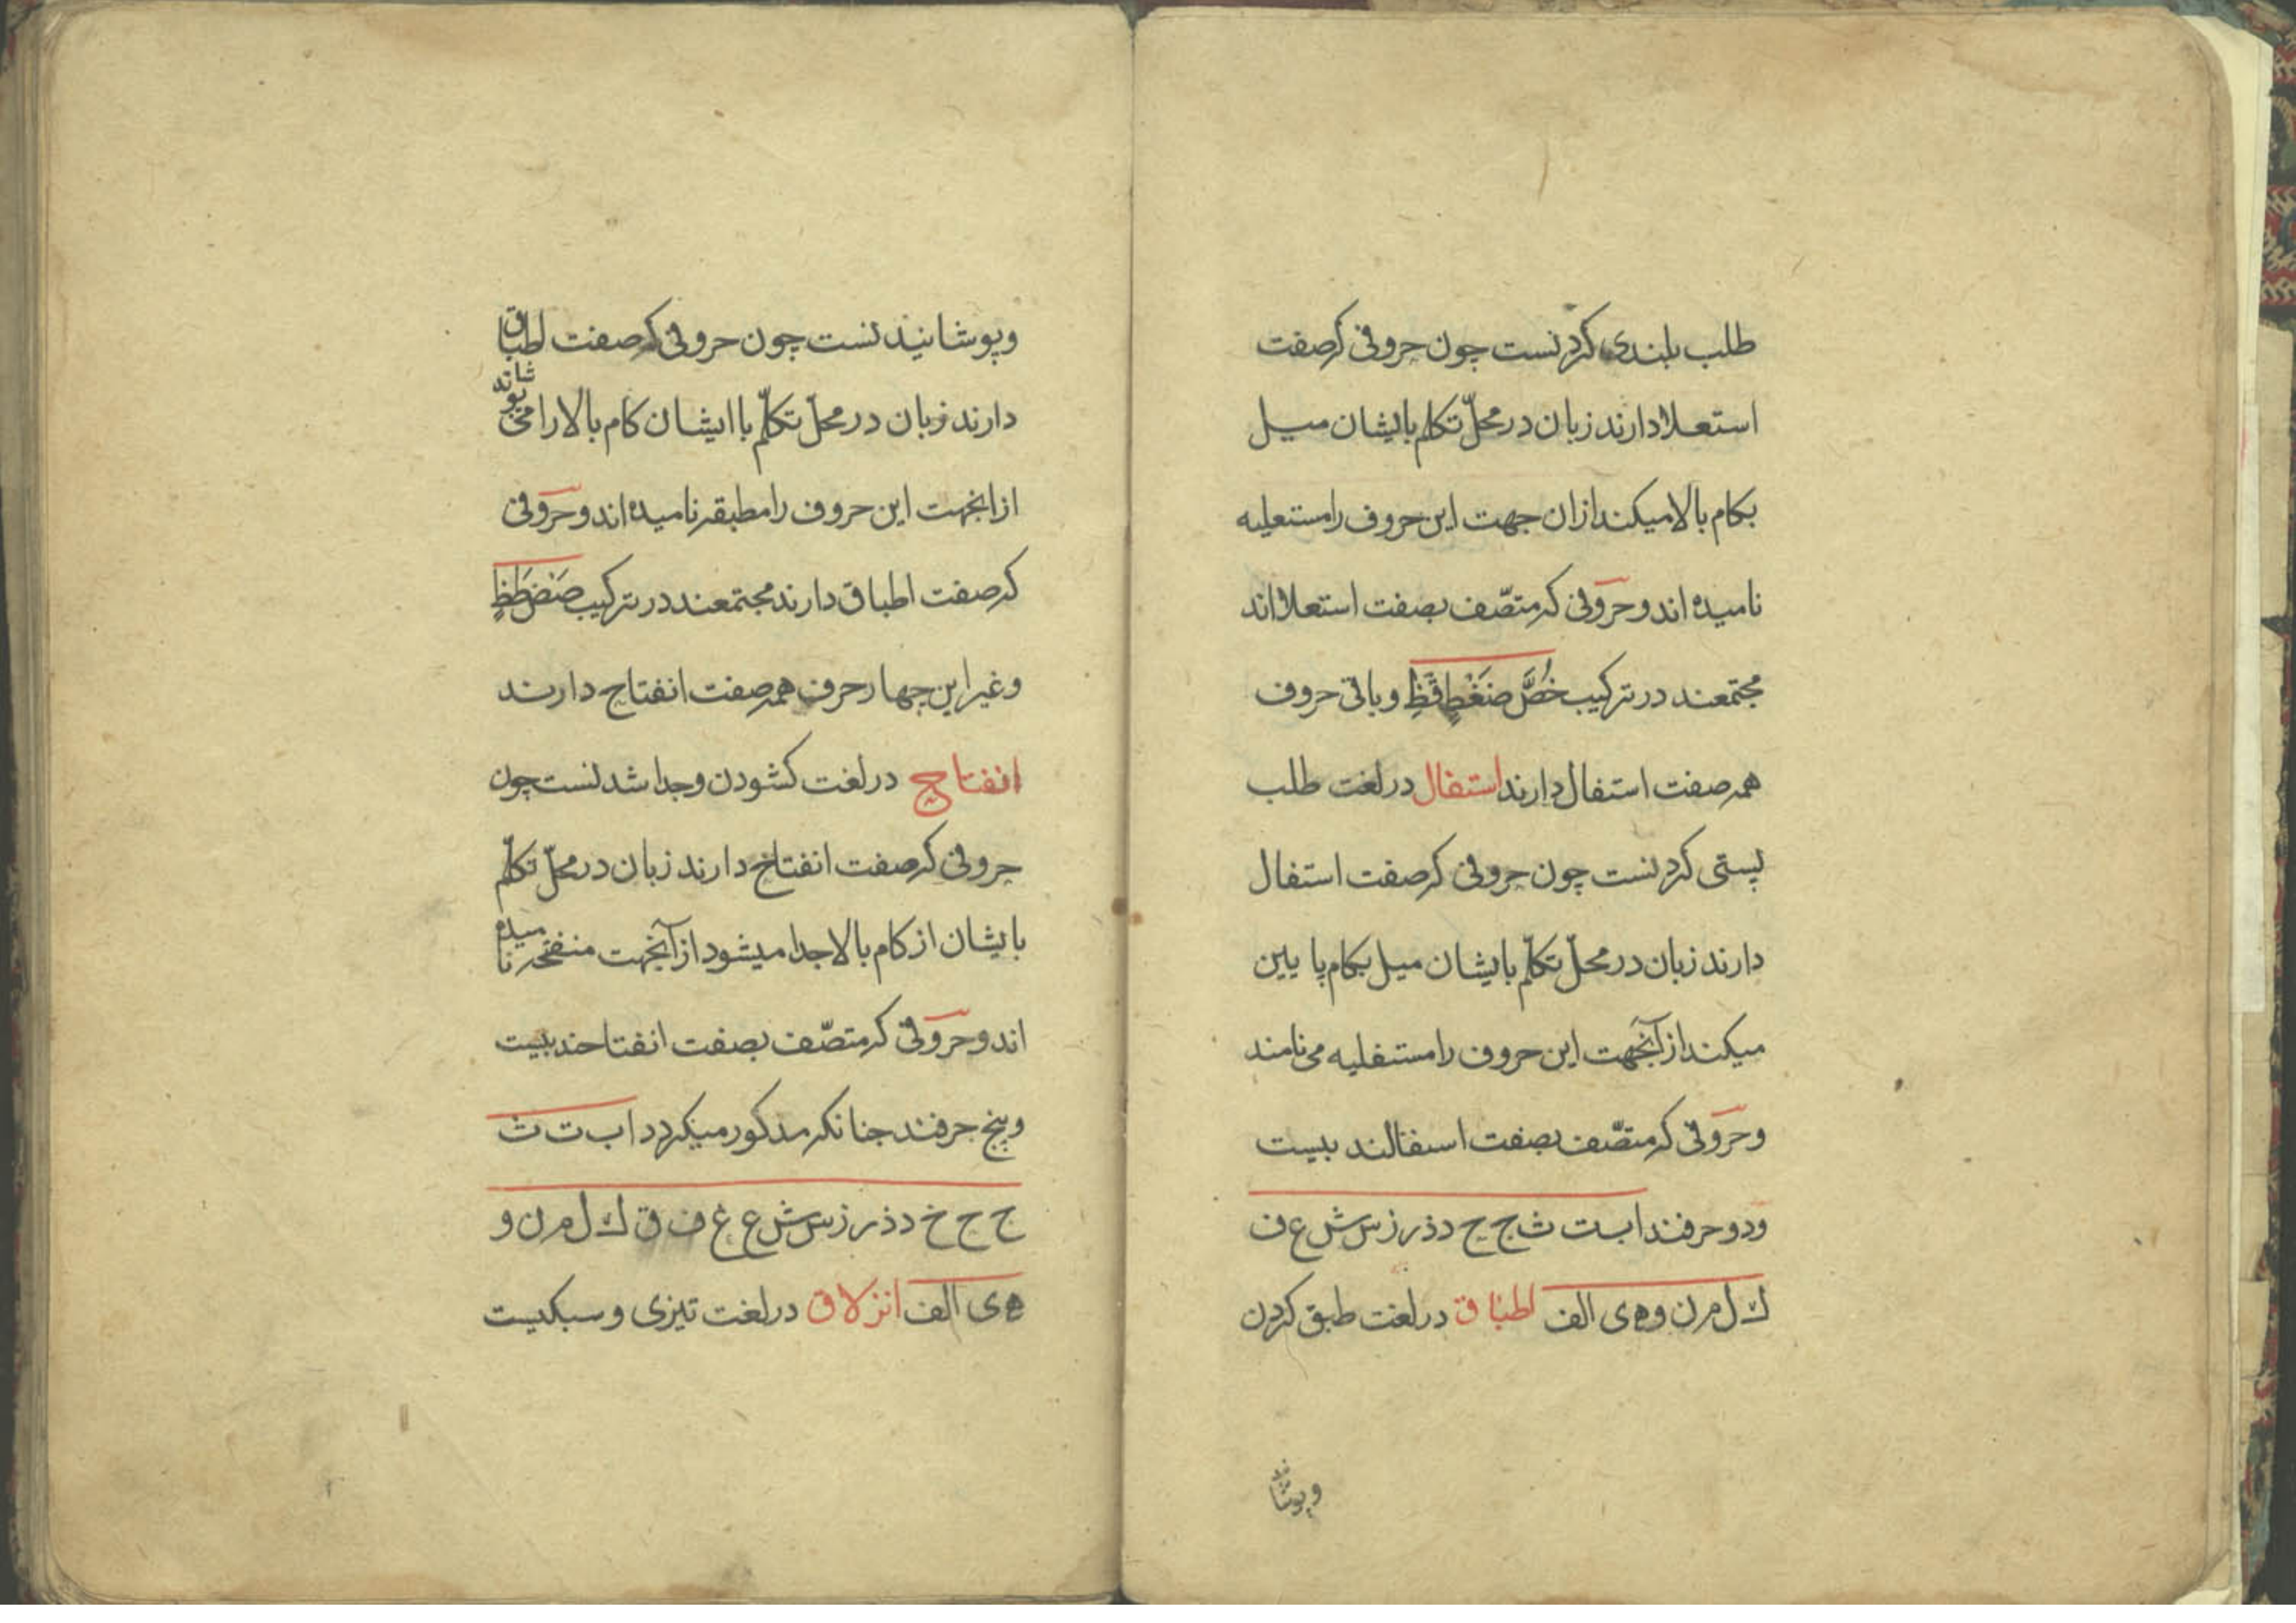 طلب بلندی کردنست چون حروفی که صفت
استعلا دارند زبان در محلّ تکلم بایشان میل
بکام بالا میکند ازان جهت این حروف را مستعلیه
نامیده اند و حروفی که متصّف بصفت استعلا اند
مجتمعند در ترکیب خُصَّ ضَغْطٍ قَظِ و باقی حروف
همه صفت استفال دارند استفال در لغت طلب
پستی کردنست چون حروفی که صفت استفال
دارند زبان در محلّ تکلّم بایشان میل بکام پایین
میکند از آنجهت این حروف را مستفلیه می نامند
و حروفی که متصّف بصفت اسفالند بیست
ودو حرفند اب ت ث ج ح د ذ ر ز س ش ع ف
ك ل م ن و ه ی الف اطباق در لغت طبق کردن
وپوشاند
وپوشانیدنست چون حروفی که صفت اطباق
دارند زبان در محلّ تکلّم با ایشان کام بالا را می پوشاند
از انجهت این حروف را مطبقه نامیده اند و حروفی
که صفت اطباق دارند مجتمعند در ترکیب صَضَطَظٍ
و غیر این چهار حرف همه صفت انفتاح دارند
انفتاح در لغت کشودن و جدا شدنست چون
حروفی که صفت انفتاح دارند زبان در محلّ تکلّم
بایشان از کام بالا جدا میشود از آنجهت منفتحه نامیده
اند و حروفی که متصّف بصفت انفتاحند بیست
و پنج حرفند جنانکه مذکور میکردد ا ب ت ث
ج ح خ د ذ ر ز س ش ع غ ف ق ك ل م ن و
ه ی الف انزلاق در لغت تیزی و سبکیست